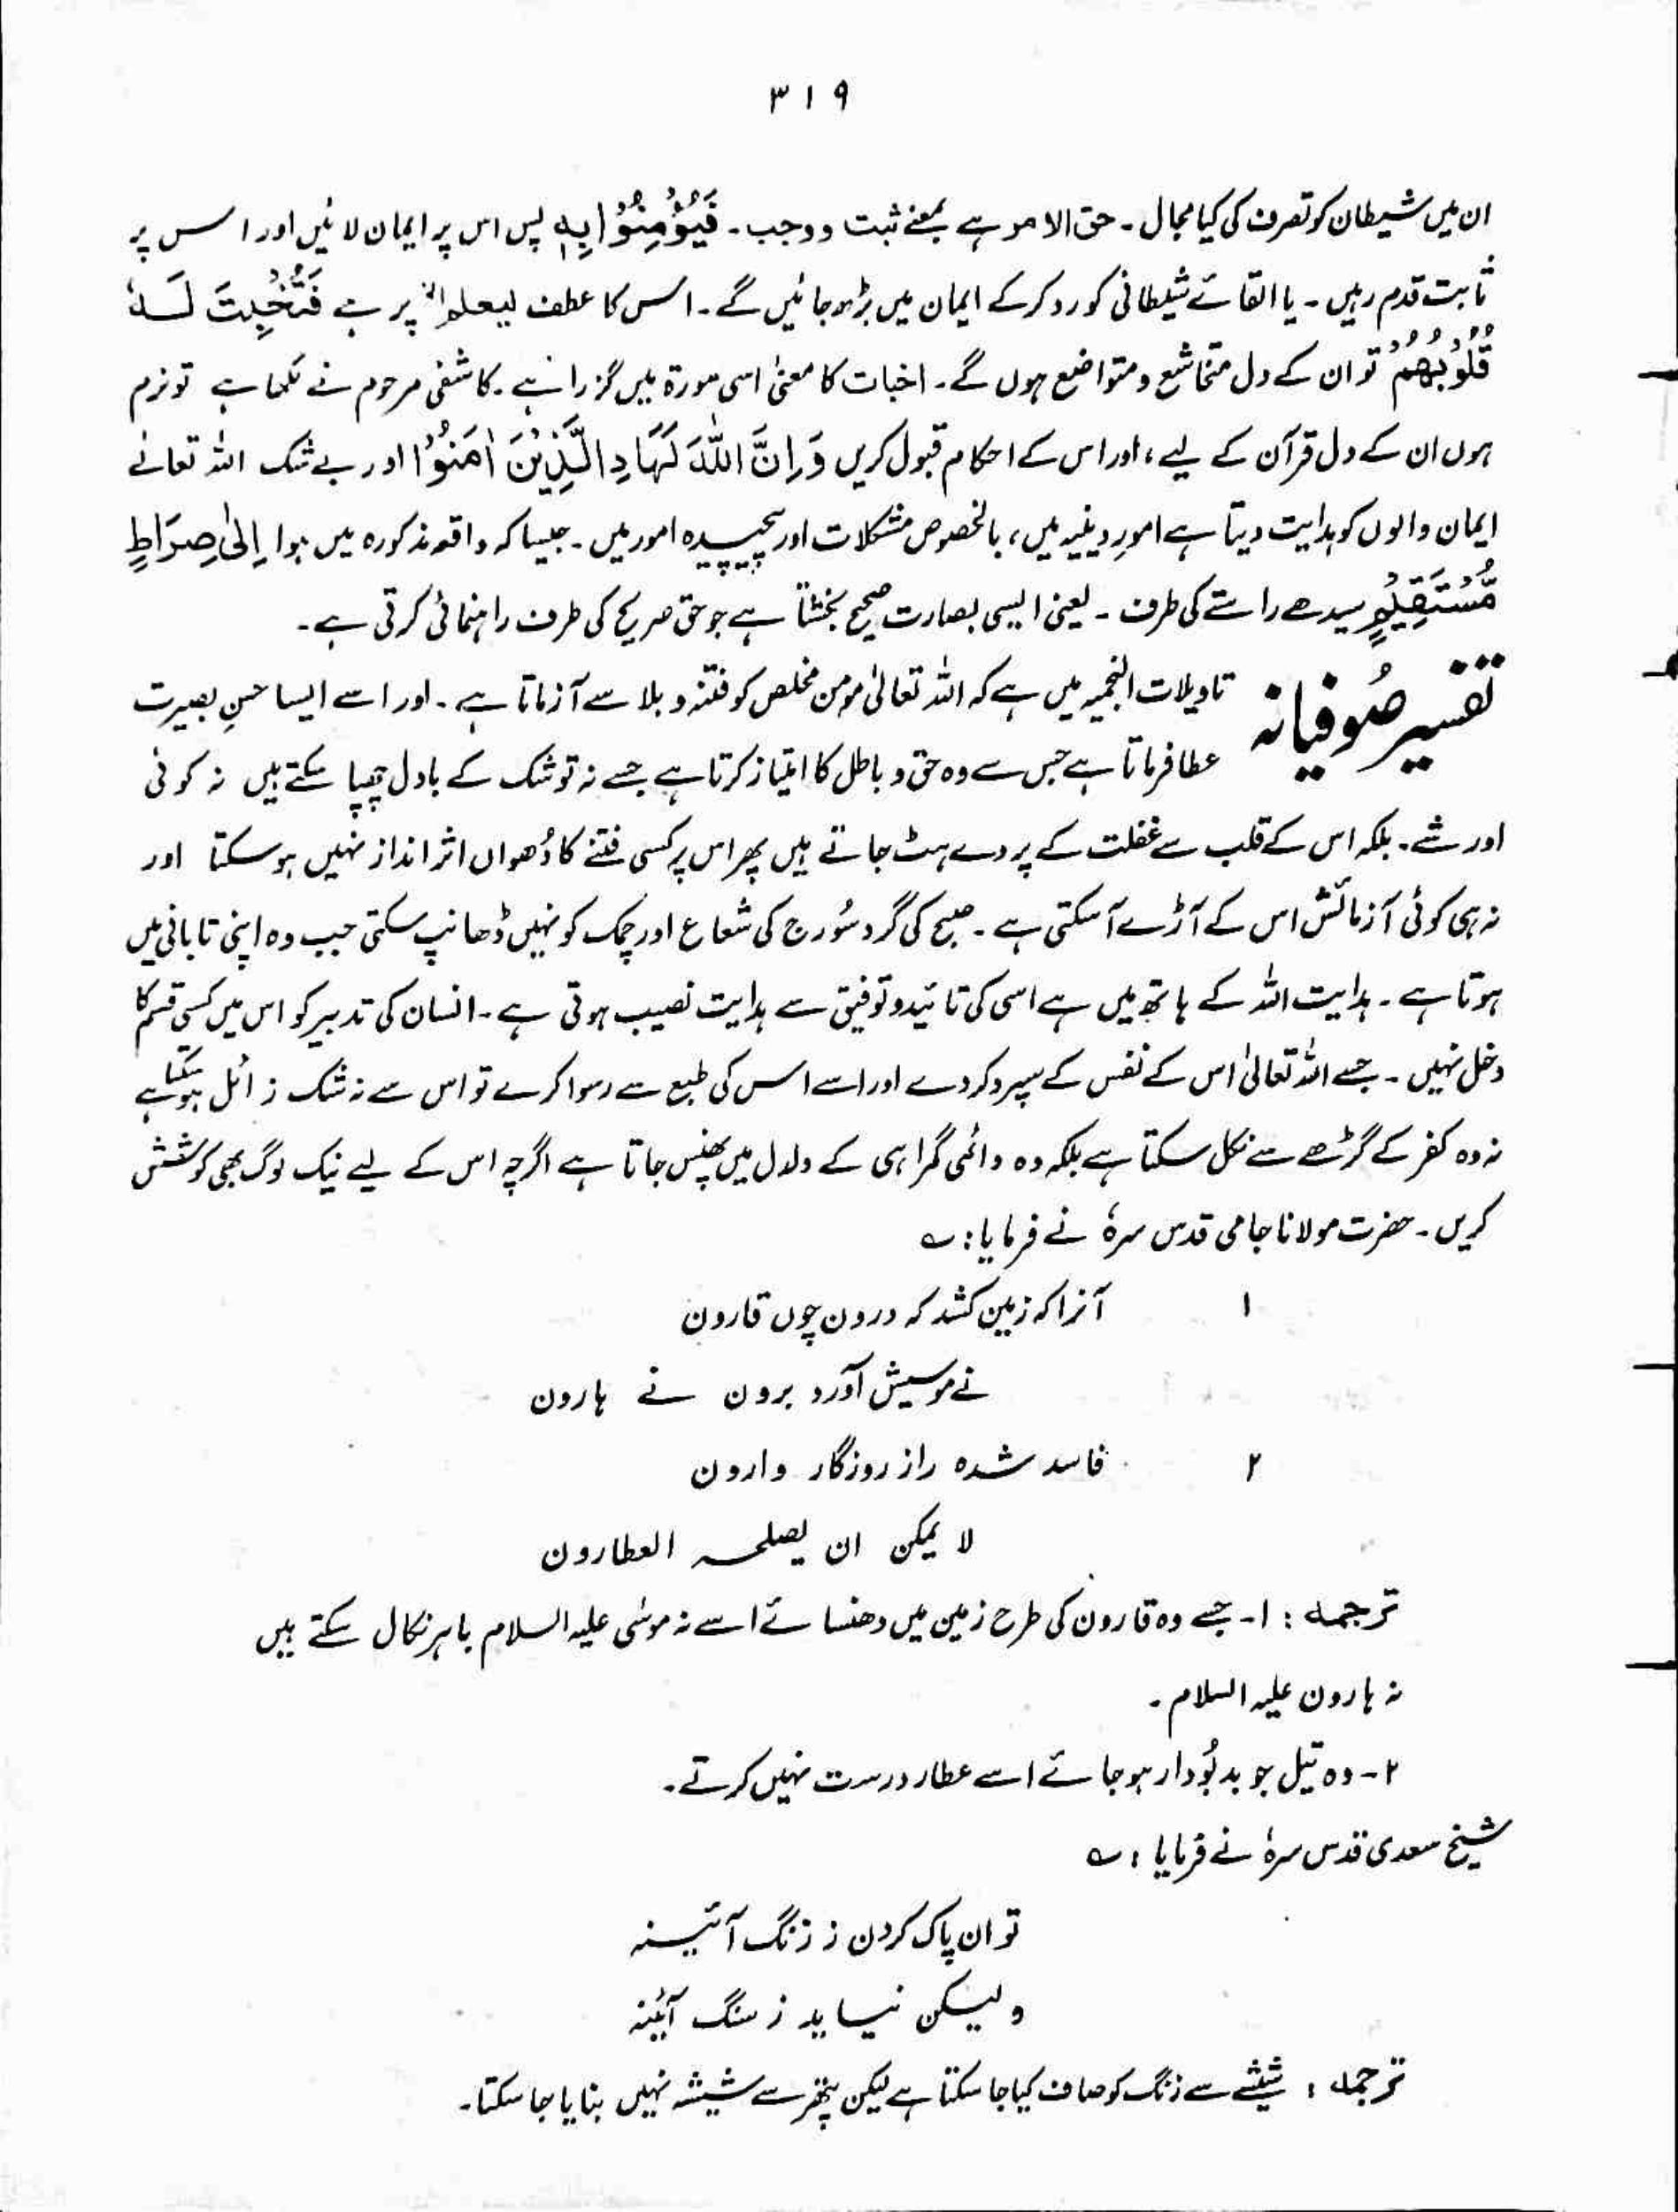 ۳۱۹
ان میں شیطان کو تصرف کی کیا مجال ۔ حق الامر ہے بمعنے ثبت و وجب ۔ فَیُؤْمِنُوْا بِہٖ پس اس پر ایمان لائیں اور اس پر
ثابت قدم رہیں ۔ یا القائے شیطانی کو رد کرکے ایمان میں بڑھ جائیں گے ۔ اس کا عطف لیعلم الخ پر ہے فَتُخْبِتَ لَہٗ
قُلُوْبُھُمْ تو ان کے دل متخاشع و متواضع ہوں گے ۔ اخبات کا معنیٰ اسی سورۃ میں گزرا ہے ۔ کاشفی مرحوم نے لکھا ہے تو نرم
ہوں ان کے دل قرآن کے لیے ، اور اس کے احکام قبول کریں وَاِنَّ اللّٰہَ لَھَادِ الَّذِیْنَ اٰمَنُوْا اور بے شک اللہ تعالےٰ
ایمان والوں کو ہدایت دیتا ہے امورِ دینیہ میں ، بالخصوص مشکلات اور پیچیدہ امور میں ۔ جیسا کہ واقعہ مذکورہ میں ہوا اِلٰی صِرَاطٍ
مُّسْتَقِیْمٍ سیدھے راستے کی طرف ۔ یعنی ایسی بصارت صحیح بخشتا ہے جو حق صریح کی طرف راہنمائی کرتی ہے ۔
تفسیر صُوفیانہ تاویلات النجمیہ میں ہے کہ اللہ تعالیٰ مومن مخلص کو فتنہ و بلا سے آزماتا ہے ۔ اور اسے ایسا حسنِ بصیرت
عطا فرماتا ہے جس سے وہ حق و باطل کا امتیاز کرتا ہے جسے نہ تو شک کے بادل چھپا سکتے ہیں نہ کوئی
اور شے ۔ بلکہ اس کے قلب سے غفلت کے پردے ہٹ جاتے ہیں پھر اس پر کسی فتنے کا دُھواں اثر انداز نہیں ہو سکتا اور
نہ ہی کوئی آزمائش اس کے آڑے آ سکتی ہے ۔ صبح کی گرد سُورج کی شعاع اور چمک کو نہیں ڈھانپ سکتی جب وہ اپنی تابانی میں
ہوتا ہے ۔ ہدایت اللہ کے ہاتھ میں ہے اسی کی تائید و توفیق سے ہدایت نصیب ہوتی ہے ۔ انسان کی تدبیر کو اس میں کسی قسم کا
دخل نہیں ۔ جسے اللہ تعالیٰ اس کے نفس کے سپرد کردے اور اسے اس کی طبع سے رسوا کرے تو اس سے نہ شک زائل ہو سکتا ہے
نہ وہ کفر کے گڑھے سے نکل سکتا ہے بلکہ وہ دائمی گمراہی کے دلدل میں پھنس جاتا ہے اگرچہ اس کے لیے نیک لوگ بھی کوشش
کریں ۔ حضرت مولانا جامی قدس سرہٗ نے فرمایا : ؎
۱ آنرا کہ زمین کشد کہ درون چوں قارون
نے موسیش آورد برون نے ہارون
۲ فاسد شدہ راز روزگار وارون
لا یمکن ان یصلحہ العطارون
ترجمہ : ۱ ۔ جسے وہ قارون کی طرح زمین میں دھنسائے اسے نہ موسٰی علیہ السلام باہر نکال سکتے ہیں
نہ ہارون علیہ السلام ۔
۲ ۔ وہ تیل جو بدبُودار ہو جائے اسے عطار درست نہیں کرتے ۔
شیخ سعدی قدس سرہٗ نے فرمایا : ؎
توان پاک کردن ز زنگ آئینہ
ولیکن نیاید ز سنگ آئینہ
ترجمہ : شیشے سے زنگ کو صاف کیا جا سکتا ہے لیکن پتھر سے شیشہ نہیں بنایا جا سکتا ۔